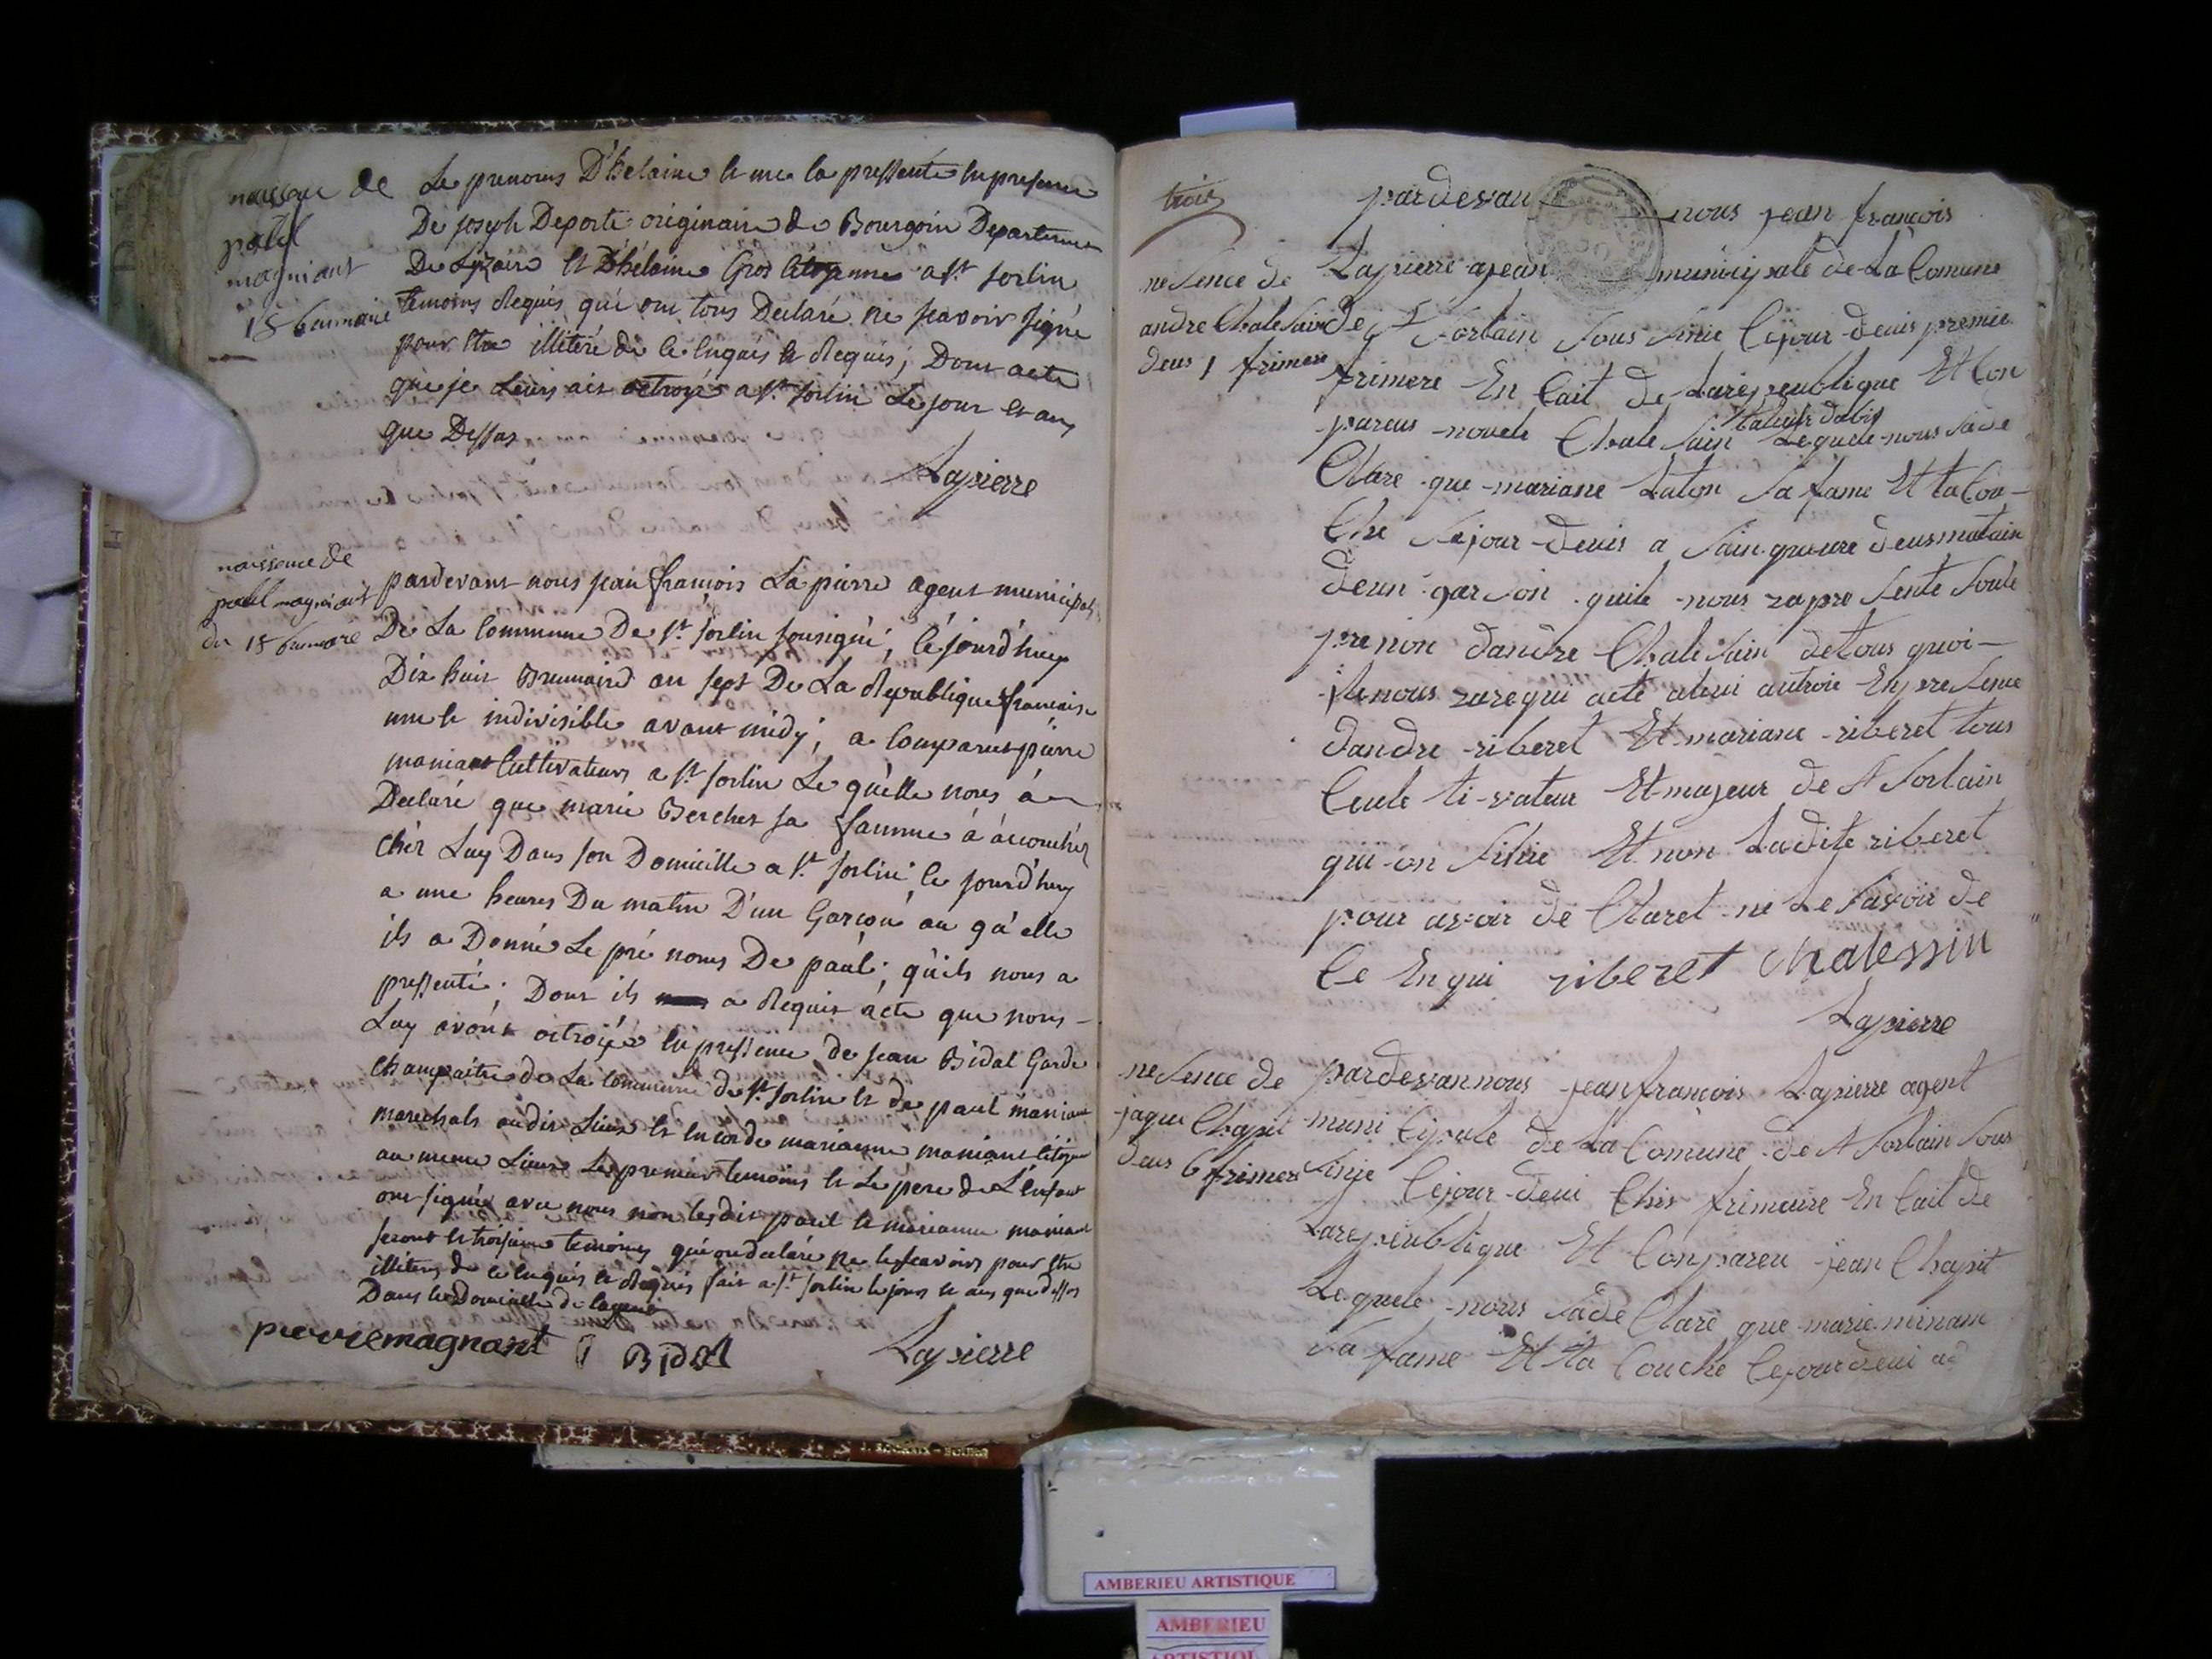 naissance de
paul
magniant
18 brumaire
Le prenoms D'hélaine et me la pressente en presence
De joseph Deporte originaire de Bourgoin Departement
De Lizaire et D'hélaine Gros Citoyenne a St Sorlin
temoins Requis qui ont tous Declaré ne scavoir signé
pour Etre illiteré de ce Enquis et Requis; Dont acte
que je Leurs ais octroyé a St Sorlin Le jour et an
que Dessus
Lapierre
naissance de
paul magniant
du 18 brumaire
pardevant nous jean françois Lapierre agent municipal
De La Commune De St Sorlin sousigné; cejourd'huy
Dix huit Brumaire an sept De La Republique francaise
une et indivisible avant midy; a Comparut pierre
maniant Cultivateurs a St Sorlin Le quelle nous à
Declaré que marie Bercher sa famme à àccouchér
chér Luy Dans son Domicille a St Sorlin ce jourd'huy
a une heures Du matin D'un Garçon au qu'elle
ils a Donné Le pré noms De paul; qu'ils nous a
pressenté; Dont ils a Requis acte que nous
Luy avons octroyé En pressence de jean Bidal Garde
champaitre de La Commune de St Sorlin et de paul maniant
marechals audit Lieux et encorde marianne maniant Citoyenne
au meme Lieux Le premier temoins et Le pere de L'enfant
ont signé avec nous non lesdit paul et marianne maniant
segont et troisieme temoins qui on declaré ne le scavoirs pour etre
illiteré de ce Enquis et Requis fait a St Sorlin le jour et ans que dessus
Dans le Domicille de lagent
pierremagnant J Bidal Lapierre
trois
nesence de
andre Chalesain
deus 1 frimere
pardevan nous jean françois
Lapierre ajean munisipale de La Comune
de St Sorlain Sous Sinie Cejour deuis premie
frimere En Cait de Larepeublique Et Con
pareus nouele Chale Sain Lequele nous Sade
Clare que mariane Laton Sa fame Et ta Cou-
Che Sejour deuis a Sain queure deus matain
deun garson quile nous zapresente Soule
prenon dandre Chale Sain detous quoi-
ile nous zarequi acte alui autroie En presence
dandre riberet Et mariane riberet tous
Ceule ti-vateur Et majeur de St Sorlain
qui on Sinie Et non Ladite riberet
pour avoir de Claret ne Le Savoir de
Ce En qui riberet Chalessin
Lapierre
nesence de
jaque Chapit
deus 6 frimere
pardevan nous jean françois Lapierre agent
muni Cipale de La Comune de St Sorlain Sous
Sinie Cejour deui Chis frimaire En Cait de
Larepeublique Et Conpareu jean Chapit
Lequele nous Sade Clare que marie
Sa fame Et ta Couche Cejourdeui
J. ROCHAIX - BOURG
AMBERIEU ARTISTIQUE
AMBERIEU
ARTISTIQUE